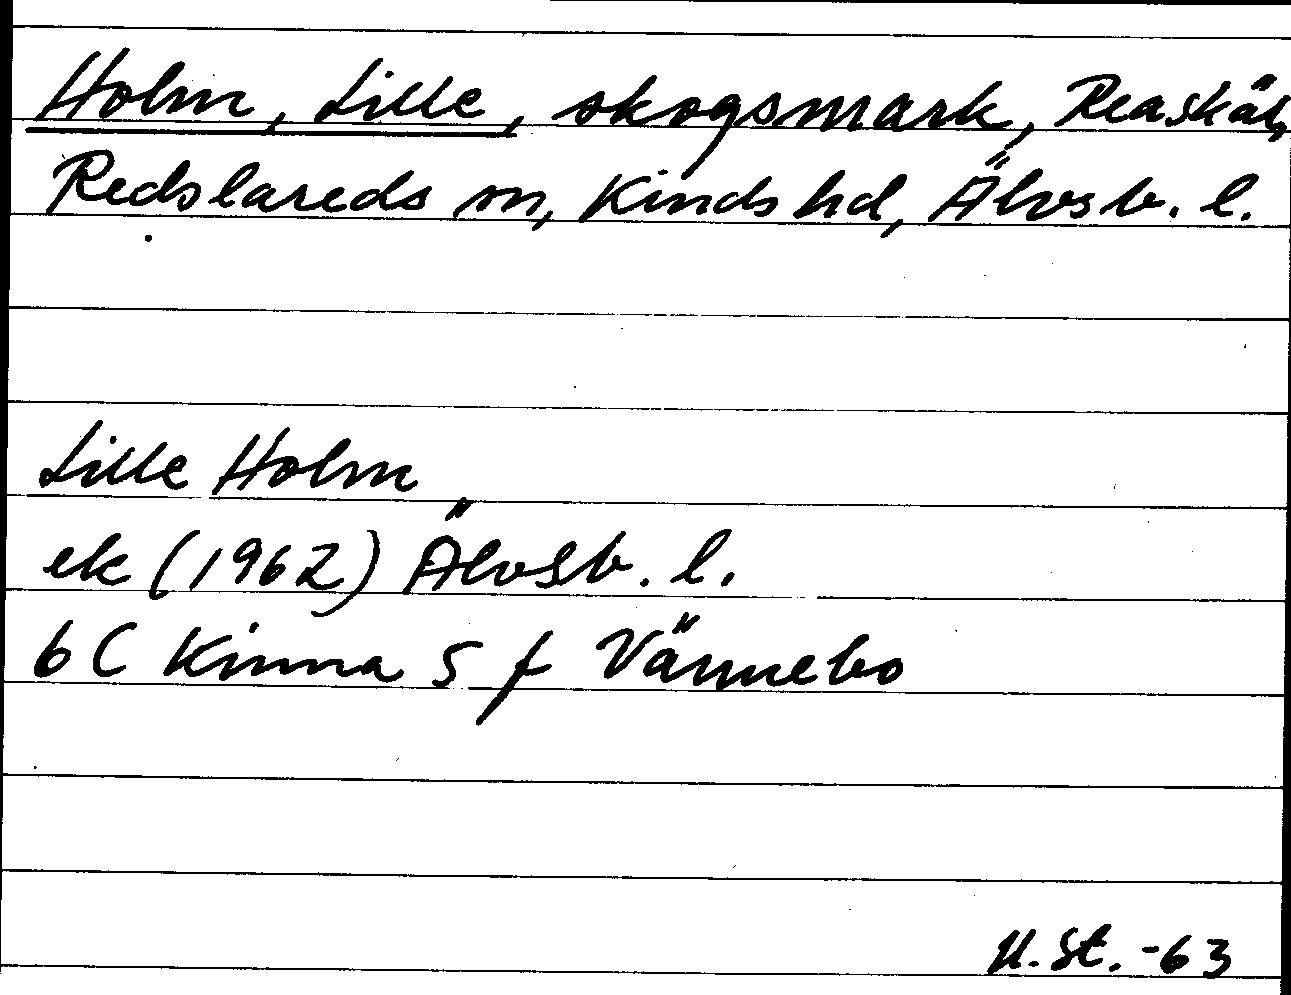 Holm, Lille, skogsmark, Reaskäl,
Redslareds sn, Kinds hd, Älvsb. l.
Lille Holm
ek (1962) Älvsb. l.
6 C Kinna S f Vännebo
U. St. -63